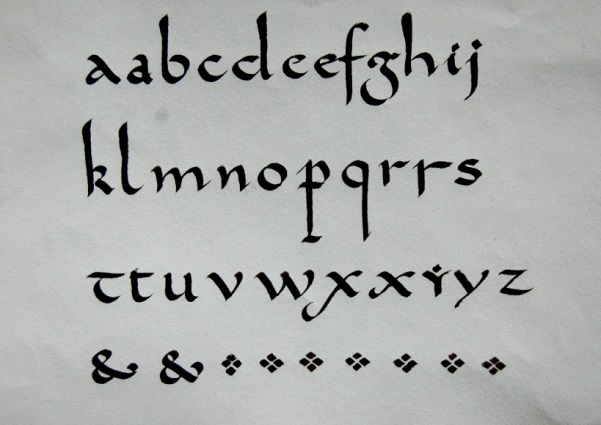 aabccdeefghij
klmnopqrrs
ttuvwxxyyz
& &